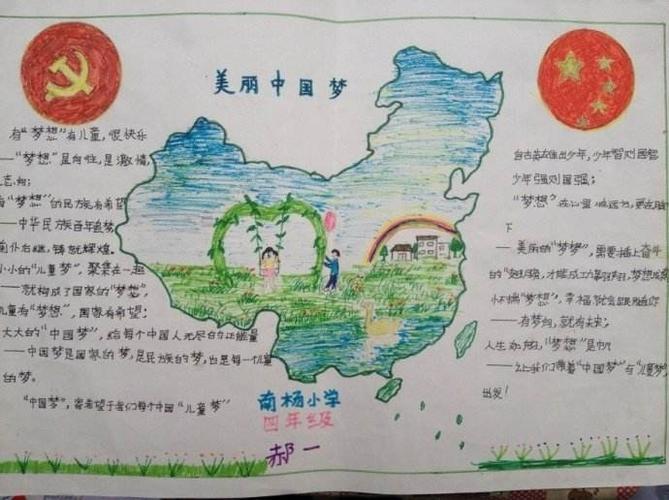 美丽中国梦
有“梦想”有儿童，很快乐
——“梦想”是向往，是激情，
志向；
有“梦想”的民族有希望
——中华民族百年追梦
前仆后继，铸就辉煌。
小小的“儿童梦”，聚集在一起
——就构成了国家的“梦想”，
儿童有“梦想”，国家有希望；
大大的“中国梦”，给每个中国人无尽的正能量
——中国梦是国家的梦，是民族的梦，也是每一个儿童
的梦。
“中国梦”，寄希望于我们每个中国“儿童梦”
自古英雄出少年，少年智则国智
少年强则国强；
“梦想”在心里
下
——美丽的“梦想”，需要插上奋斗
的“翅膀”，才能成功
怀揣“梦想”，幸福就会跟随你
——有梦想，就有未来；
人生
“梦想”是
——让我们带着“中国梦”与“儿童梦”
出发！
南杨小学
四年级
郝一